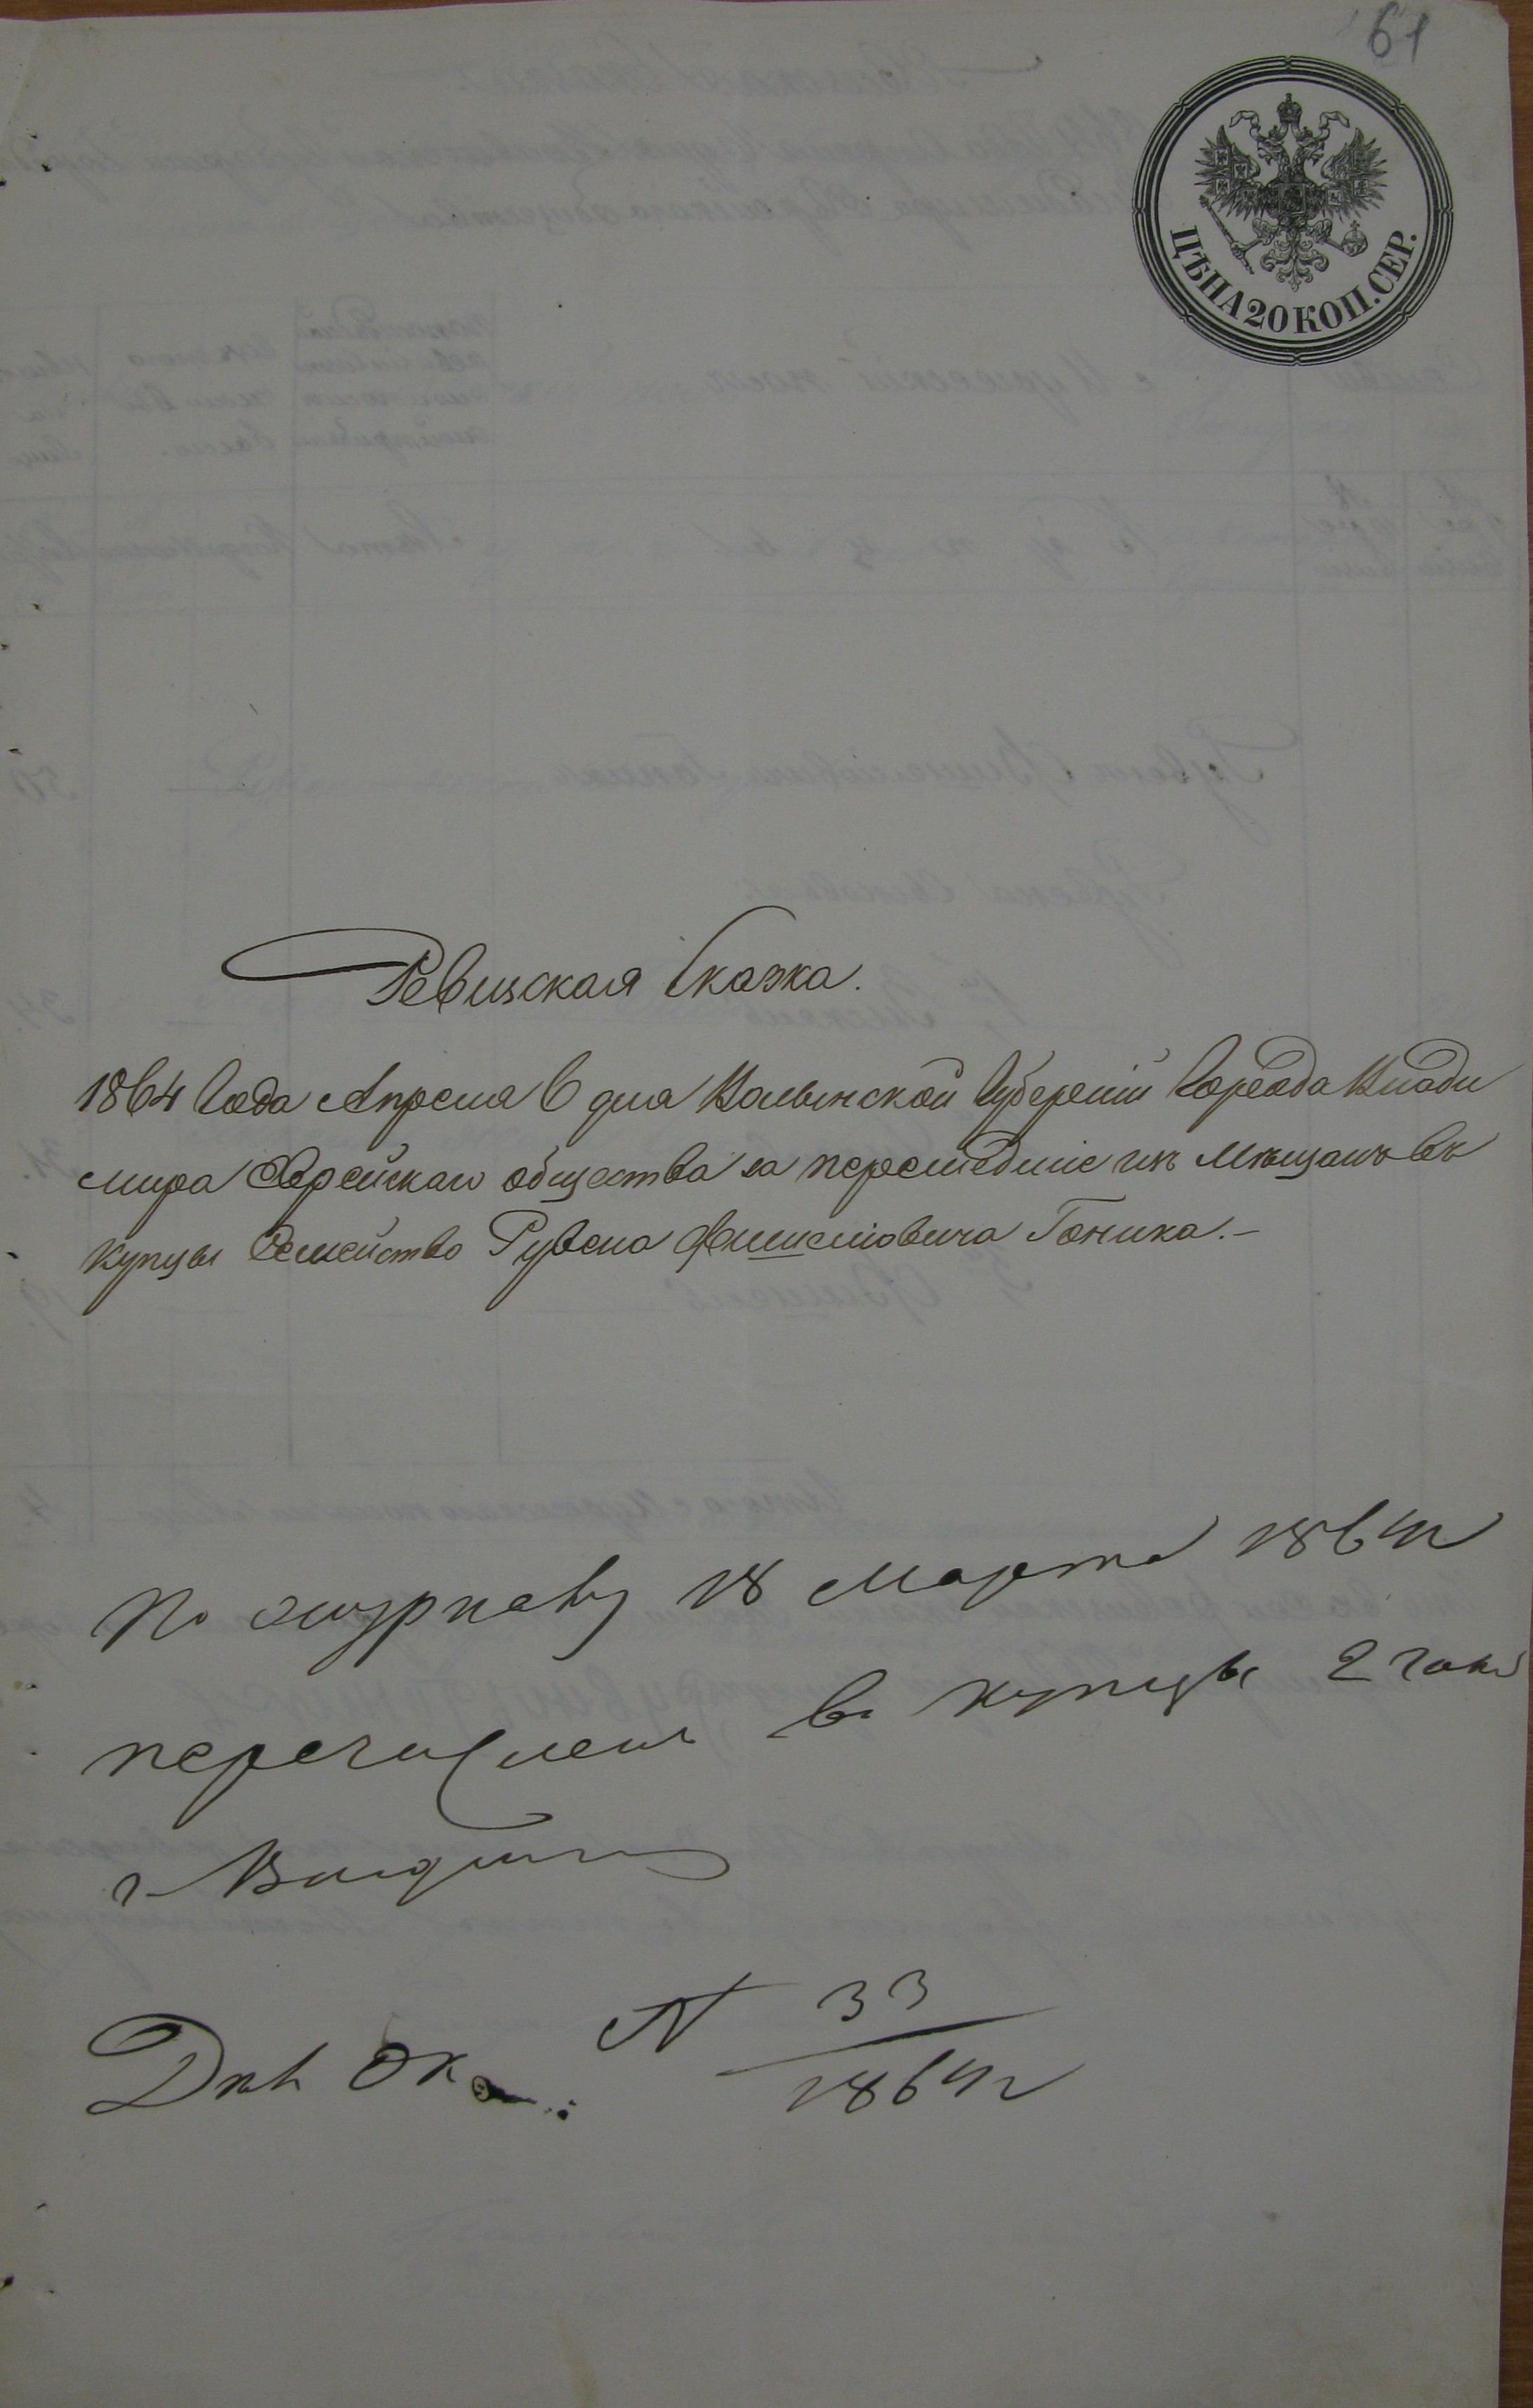 61
ЦѢНА 20 КОП. СЕР.
Ревизская Сказка.
1864 Года Апреля 6 дня Волынской Губерніи Города Влади
мира Еврейскаго общества за перешедшіе изъ Мѣщанъ въ
купцы Семейство Рувена Фишелiовича Гоника.-
По журналу 18 Марта 1864 г
перечислен в купцы 2 гил
г Владимир
N 33
1864 г